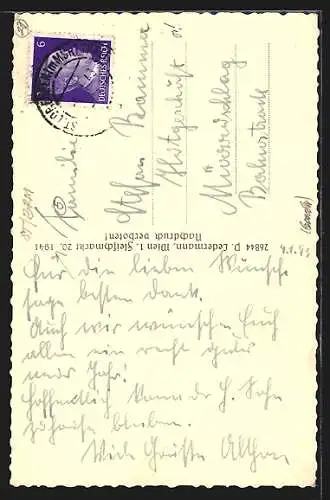 6
DEUTSCHES REICH
Familie
Stefan
Mürzzuschlag
Bahnstraße
26844 P. Ledermann, Wien I., Fleischmarkt 20. 1941
Nachdruck verboten!
Für die lieben Wünsche
sage besten Dank.
Auch wir wünschen Euch
allen ein recht gutes
neues Jahr!
Hoffentlich kann der H. Sohn
zuhause bleiben.
Viele Grüsse